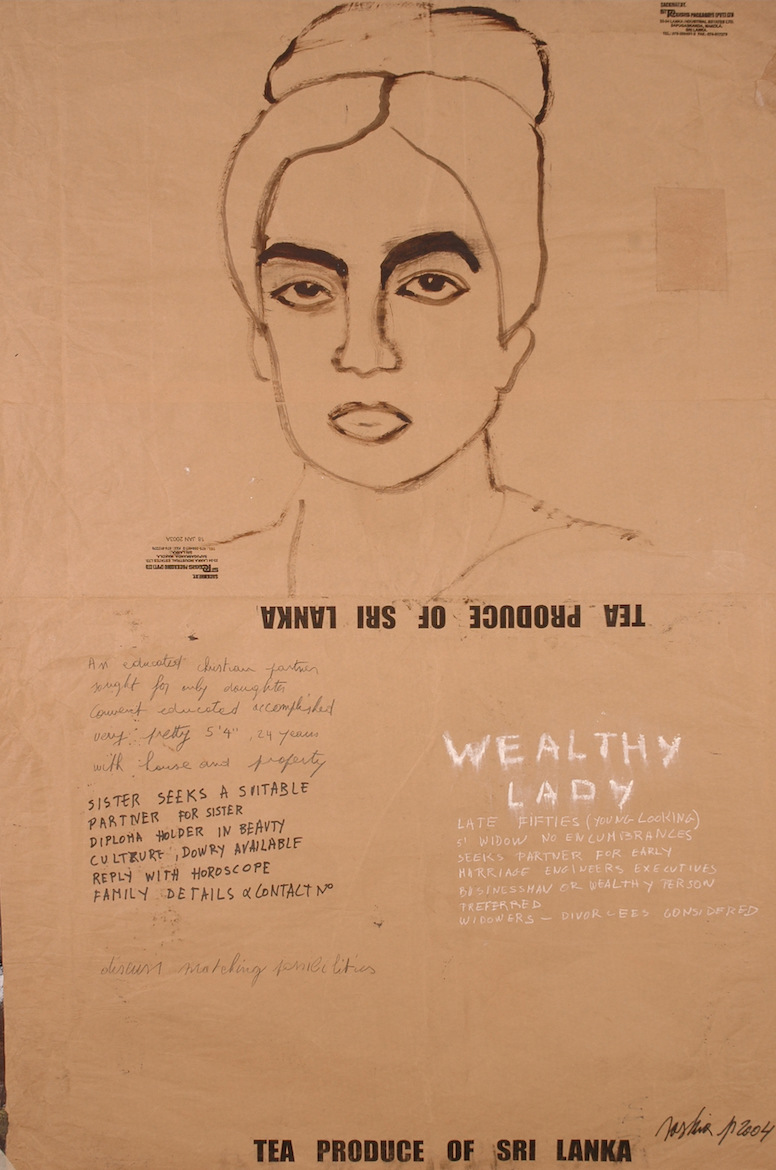 TEA PRODUCE OF SRI LANKA
An educated christian partner
sought for only daughter
Convent educated accomplished
very pretty 5'4", 24 years
with house and property
SISTER SEEKS A SUITABLE
PARTNER FOR SISTER
DIPLOMA HOLDER IN BEAUTY
CULTRURE, DOWRY AVAILABLE
REPLY WITH HOROSCOPE
FAMILY DETAILS & CONTACT No
discuss matching possibilities
WEALTHY
LADY
LATE FIFTIES (YOUNG LOOKING)
5' WIDOW NO ENCUMBRANCES
SEEKS PARTNER FOR EARLY
MARRIAGE ENGINEERS EXECUTIVES
BUSINESSMAN OR WEALTHY PERSON
PREFERRED
WIDOWERS – DIVORCEES CONSIDERED
2004
TEA PRODUCE OF SRI LANKA